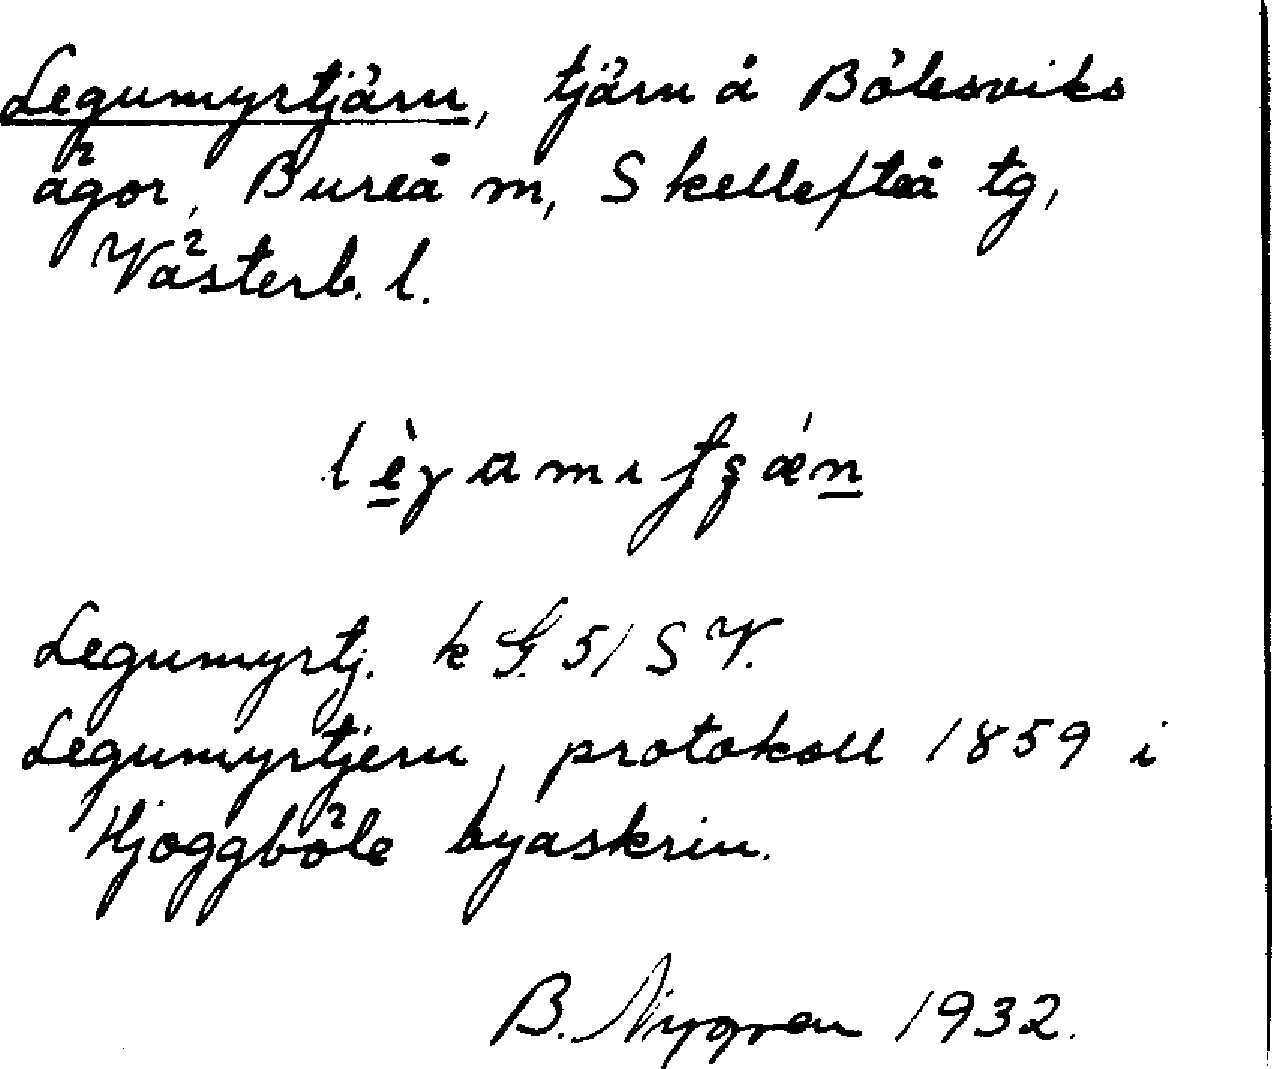 Legumyrtjärn, tjärn å Bölesviks
ägor, Bureå m, Skellefteå tg,
Västerb. l.
Legumyrtj. k G. 51 S V.
Legumyrtjern, protokoll 1859 i
Hjoggböle byaskrin.
B. Nygren 1932.